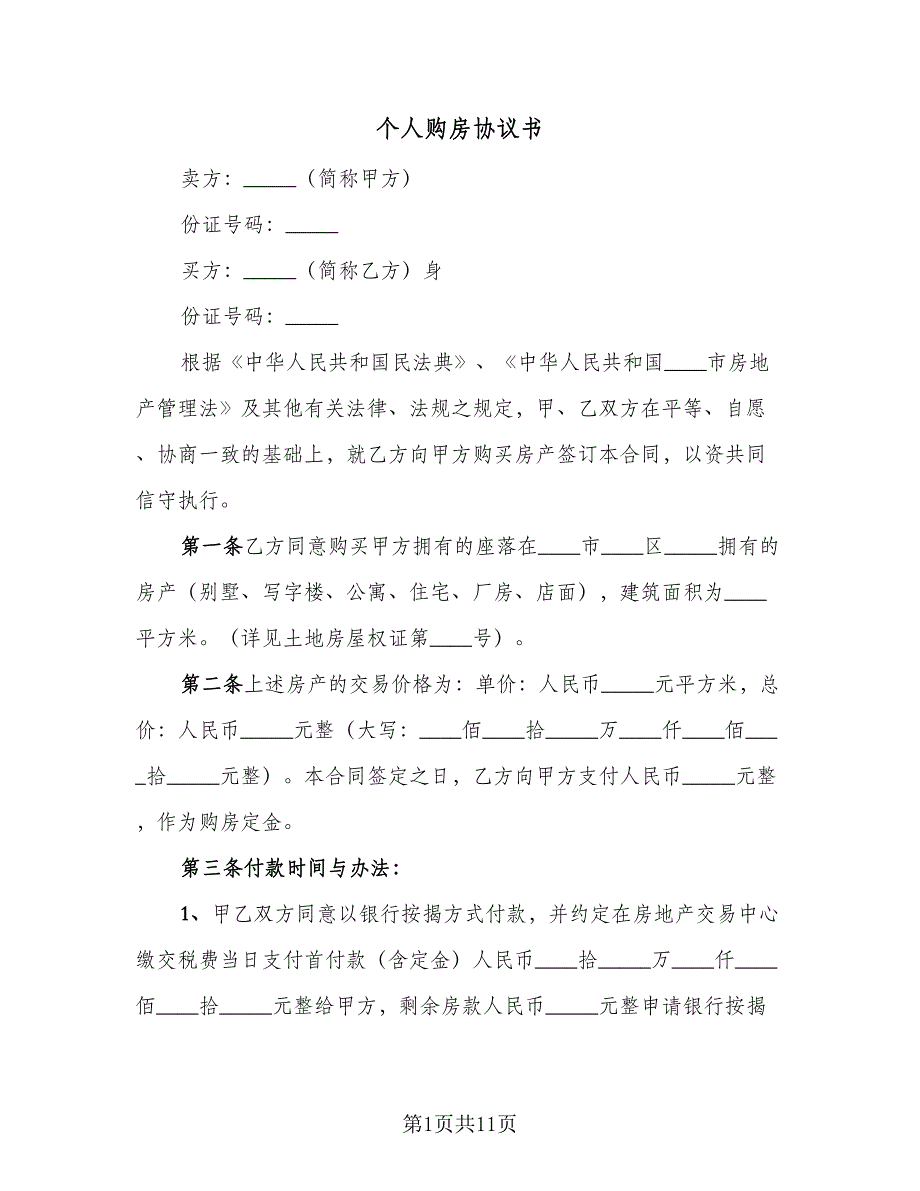 个人购房协议书
卖方：_____（简称甲方）
份证号码：_____
买方：_____（简称乙方）身
份证号码：_____
根据《中华人民共和国民法典》、《中华人民共和国____市房地
产管理法》及其他有关法律、法规之规定，甲、乙双方在平等、自愿
、协商一致的基础上，就乙方向甲方购买房产签订本合同，以资共同
信守执行。
第一条乙方同意购买甲方拥有的座落在____市____区_____拥有的
房产（别墅、写字楼、公寓、住宅、厂房、店面），建筑面积为____
平方米。（详见土地房屋权证第____号）。
第二条上述房产的交易价格为：单价：人民币_____元平方米，总
价：人民币_____元整（大写：____佰____拾_____万____仟____佰___
_拾_____元整）。本合同签定之日，乙方向甲方支付人民币_____元整
，作为购房定金。
第三条付款时间与办法：
1、甲乙双方同意以银行按揭方式付款，并约定在房地产交易中心
缴交税费当日支付首付款（含定金）人民币____拾_____万____仟____
佰____拾_____元整给甲方，剩余房款人民币_____元整申请银行按揭
第1页共11页